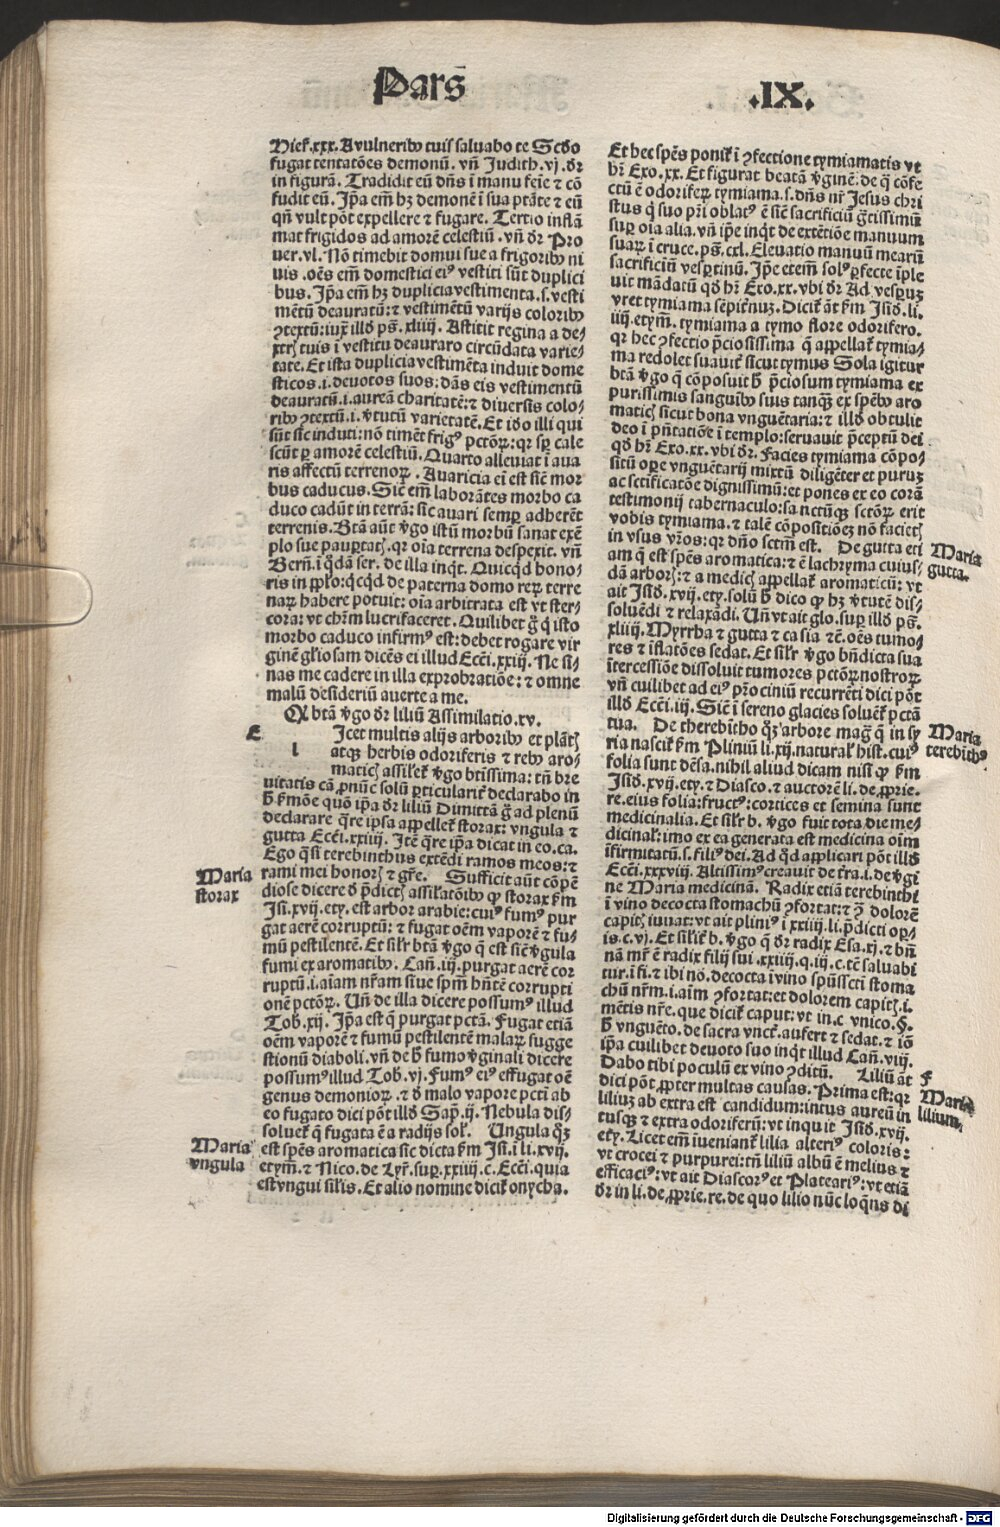 Pars̃
.IX.
Hieȓ.xxx. A vulnerib᷒ tuis saluabo te Scd̵o
fugat tentatões demonũ. vñ Judith.vj. d̵r
in figurã. Tradidit eũ dñs ĩ manu feĩe ⁊ cõ
fudit eũ. Ip̃a em̃ hȝ demonẽ ĩ sua ptãte ⁊ eũ
qñ vult põt expellere ⁊ fugare. Tertio inflã
mat frigidos ad amorẽ celestiũ. vñ d̵r Pro
uer.vl. Nõ timebit domui sue a frigorib᷒ ni
uis. oẽs em̃ domestici ei᷒ vestiti sũt duplici
bus. Ip̃a em̃ hȝ duplicia vestimenta. s. vesti
mẽtũ deauratũ: ⁊ vestimẽtũ varijs colorib᷒
ꝯtextũ: iux̃ illd̵ pš. xliiij. Astitit regina a de⸗
xtrꝭ tuis ĩ vestitu deaurato circũdata varie⸗
tate. Et ista duplicia vestimẽta induit dome
sticos .i. deuotos suos: dãs eis vestimentũ
deauratũ .i. aureã charitatẽ: ⁊ diuersis colo⸗
rib᷒ ꝯtextũ .i. v̾tutũ varietatẽ. Et iõo illi qui
sũt sic̃ induti: nõ timẽt frig᷒ pctõꝝ: qꝛ sꝑ cale
scũt ꝑ amorẽ celestiũ. Quarto alleuiat ĩ aua
ris affectũ terrenoꝝ. Auaricia eĩ est sic̃ mor
bus caducus. Sic̃ em̃ laborãtes morbo ca
duco cadũt in terrã: sic auari semꝑ adherẽt
terrenis. Btã aũt v̾go istũ morbũ sanat exẽ
plo sue pauꝑtatꝭ. qꝛ oĩa terrena despexit. vñ
Berñ. ĩ qdã ser. de illa inqt. Quicqd hono⸗
ris in pp̃lo: qcqd de paterna domo reꝝ terre
naꝝ habere potuit: oĩa arbitrata est vt ster⸗
cora: vt chr̃m lucrifaceret. Quilibet g̃ q isto
morbo caduco infirm᷒ est: debet rogare vir
ginẽ gl̃iosam dicẽs ei illud Ecci. xxiij. Ne si⸗
nas me cadere in illa exprobratiõe: ⁊ omne
malũ desideriũ auerte a me.
Q̃ btã v̾go d̵r liliũ Assimilatio.xv.
E
l
Icet multis alijs arborib᷒ et plãtꝭ
atqꝫ herbis odoriferis ⁊ reb᷒ aro⸗
maticꝭ assil̃eȓ v̾go btissima: tñ bre
uitatis cã pnũc solũ ꝑticularit̃ declarabo in
h̃ ẜmõe quõ ip̃a d̵r liliũ Dimittã g̃ ad plenũ
declarare qre ipsa appelleȓ storax: vngula ⁊
gutta Ecci.xxiiij. Itẽ qre ip̃a dicat in eo. ca.
Ego q̃si terebinthus extẽdi ramos meos: ⁊
rami mei honorꝭ ⁊ gr̃e. Sufficit aũt cõpẽ
Maria
storax
diose dicere d̵ p̃dictꝭ assil̃atõib᷒ ꝙ storax ẜm
Isi. xvij. ety. est arbor arabie: cui᷒ fum᷒ pur
gat aerẽ corruptũ: ⁊ fugat oẽm vaporẽ ⁊ fu⸗
mũ pestilentẽ. Et sil̃r btã v̾go q est sic̃ v̾gula
fumi ex aromatib᷒. Cañ. iij. purgat aerẽ cor
ruptũ .i. aĩam nr̃am siue spm̃ hñtẽ corrupti
onẽ pctõꝝ. Uñ de illa dicere possum᷒ illud
Tob.xij. Ip̃a est q purgat pctã. Fugat etiã
oẽm vaporẽ ⁊ fumũ pestilentẽ malaꝝ sugge
stionũ diaboli. vñ de h̃ fumo v̾ginali dicere
possum᷒ illud Tob.vj. Fum᷒ ei᷒ effugat oẽ
genus demonioꝝ. ⁊ d̵ malo vapore pcti ab
eo fugato dici põt illd̵ Sap̃.ij. Nebula dis⸗
solueȓ q fugata ẽ a radijs sol̃. Ungula qȝ
Maria
vngula
est spẽs aromatica sic dicta ẜm Isi. ĩ li. xvij.
etym̃. ⁊ Nico. de Lyȓ. suꝑ. xxiiij. c. Ecci. quia
est vngui sil̃is. Et alio nomine diciȓ onycha.
Et hec spẽs poniȓ ĩ ꝯfectione tymiamatis vt
hr̃ Exo.xx. Et figurat beatã v̾ginẽ. de q cõfe
ctũ ẽ odoriferꝝ tymiama .s. dñs nr̃ Jesus chri
stus q suo pr̃i oblat᷒ ẽ sic̃ sacrificiũ gr̃tissimũ
suꝑ oĩa alia. vñ ip̃e inqt de extẽtiõe manuum
suaꝝ ĩ cruce. pš. cxl. Eleuatio manuũ mearũ
sacrificiũ vesꝑtinũ. Ip̃e etem̃ sol᷒ ꝑfecte ĩple
uit mãdatũ qd̵ hr̃ Exo.xx. vbi d̵r Ad vesꝑuȝ
vret tymiama sẽpit̃nuȝ. Diciȓ ãt ẜm Isid̵. li.
iiij. etym̃. tymiama a tymo flore odorifero.
qꝛ hec ꝯfectio p̃ciosissima q appellaȓ tymia⸗
ma redolet suauit̃ sicut tymus Sola igitur
btã v̾go q cõposuit h̃ p̃ciosum tymiama ex
purissimis sanguib᷒ suis tanqꝫ ex spẽb᷒ aro
maticꝭ sicut bona vnguẽtaria: ⁊ illd̵ obtulit
deo ĩ pñtatiõe ĩ templo: seruauit p̃ceptũ dei
qd̵ hr̃ Exo.xx. vbi d̵r. Facies tymiama cõpo⸗
sitũ oꝑe vnguẽtarij mixtũ diligẽter et puruȝ
ac sctificatõe dignissimũ: et pones ex eo corã
testimonij tabernaculo: sanctũqꝫ sctõꝝ erit
vobis tymiama. ⁊ talẽ cõpositiõeȝ nõ facietꝭ
in vsus vr̃os: qꝛ dño sctm̃ est. De gutta eti
Maria
gutta.
am q est spẽs aromatica: ⁊ ẽ lachryma cuius⸗
dã arborꝭ: ⁊ a medicꝭ appellaȓ aromaticũ: vt
ait Isid̵. xvij. ety. solũ h̃ dico ꝙ hȝ v̾tutẽ dis⸗
soluẽdi ⁊ relaxãdi. Uñ vt ait glo. suꝑ illd̵ pš.
xliiij. Myrrha ⁊ gutta ⁊ casia ⁊c̃. oẽs tumo⸗
res ⁊ ĩflatões sedat. Et sil̃r v̾go bñdicta sua
ĩtercessiõe dissoluit tumores pctõꝝ nostroꝝ
vñ cuilibet ad ei᷒ pr̃ociniũ recurrẽti dici põt
illd̵ Ecci. iij. Sic̃ ĩ sereno glacies solueȓ pctã
tua. De therebĩtho qȝ arbore mag̃ q in sy
Maria
terebith᷒
ria nasciȓ ẜm Pliniũ li. xij. natural̃ hist. cui᷒
folia sunt dẽsa. nihil aliud dicam nisi ꝙ ẜm
Isid̵. xvij. ety. ⁊ Diasco. ⁊ auctorẽ li. de ꝓprie.
re. eius folia: fruct᷒: cortices et semina sunt
medicinalia. Et sil̃r b. v̾go fuit tota die me⸗
dicinal̃: imo ex ea generata est medicina oĩm
ĩfirmitatũ .s. fili᷒ dei. Ad qd applicari põt illd̵
Ecci. xxxviij. Altissim᷒ creauit de tr̃a .i. de v̾gi
ne Maria medicinã. Radix etiã terebinthi
ĩ vino decocta stomachũ ꝯfortat: ⁊ ꝯ̃ dolorẽ
capitꝭ iuuat: vt ait plini᷒ ĩ xxiiij. li. p̃dicti oꝑ⸗
is. c. vj. Et sil̃iȓ b. v̾go q d̵r radix Esa.xj. ⁊ bñ
nã mr̃ ẽ radix filij sui. xxiiij. q. iij. c. tẽ saluabi
tur. ĩ fi. ⁊ ibi no. decocta ĩ vino spũssct̃i stoma
chũ nr̃m .i. aĩm ꝯfortat: et dolorem capitꝭ .i.
mẽtis nr̃e. que diciȓ caput: vt in. c. vnico. §.
h̃ vnguẽto. de sacra vnct. aufert ⁊ sedat. ⁊ iõ
ip̃a cuilibet deuoto suo inqt illud Cañ.viij.
Dabo tibi poculũ ex vino ꝯditũ. Liliũ ãt
F
Maria
lilium.
dici põt ꝓpter multas causas. Prima est: qꝛ
liliuȝ ab extra est candidum: intus aureũ in
tusqꝫ ⁊ extra odoriferũ: vt inquit Isid̵. xvij.
ety. Licet em̃ iuenianȓ lilia alteri᷒ coloris:
vt crocei ⁊ purpurei: tñ liliũ albũ ẽ melius ⁊
efficaci᷒: vt ait Diascor᷒ et Plateari᷒: vt etiã
d̵r in li. de ꝓprie. re. de quo lilio nũc loqñs di
Digitalisierung gefördert durch die Deutsche Forschungsgemeinschaft - DFG